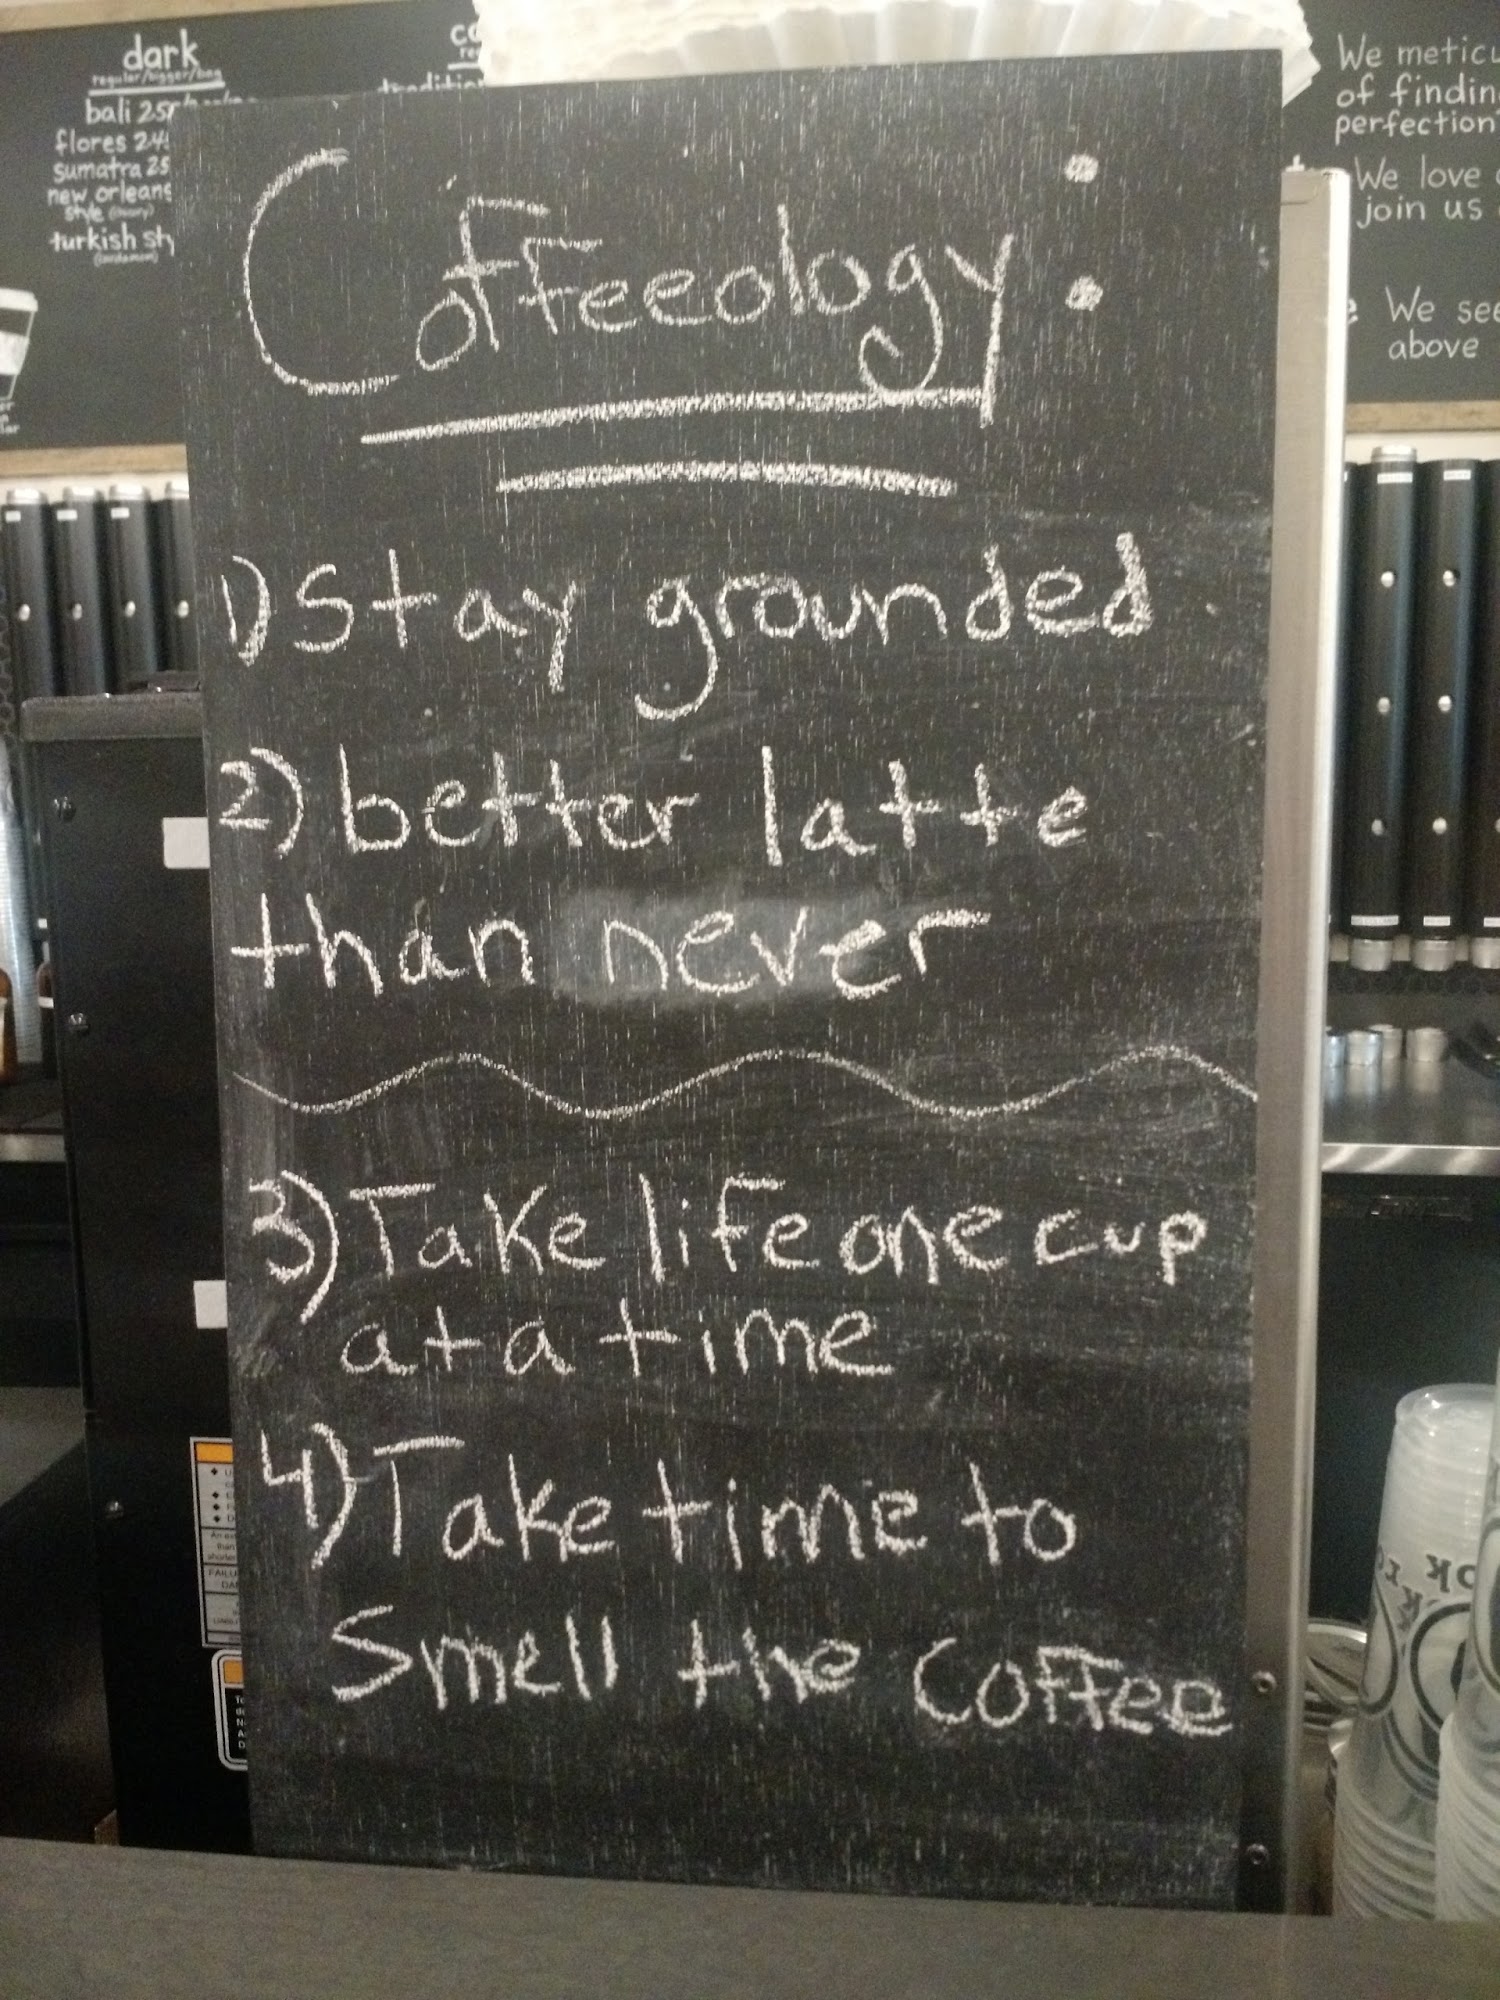 dark
regular/bigger/bag
bali
flores
sumatra
new orleans
style
turkish
We
of
perfection
We love
join us
We
above
Coffeeology:
1) Stay grounded
2) better latte
than never
3) Take life one cup
at a time
4) Take time to
Smell the Coffee